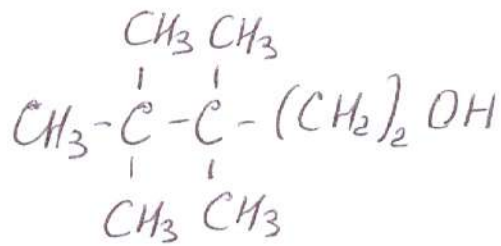 CH3 CH3
CH3-C-C-(CH2)2 OH
CH3 CH3